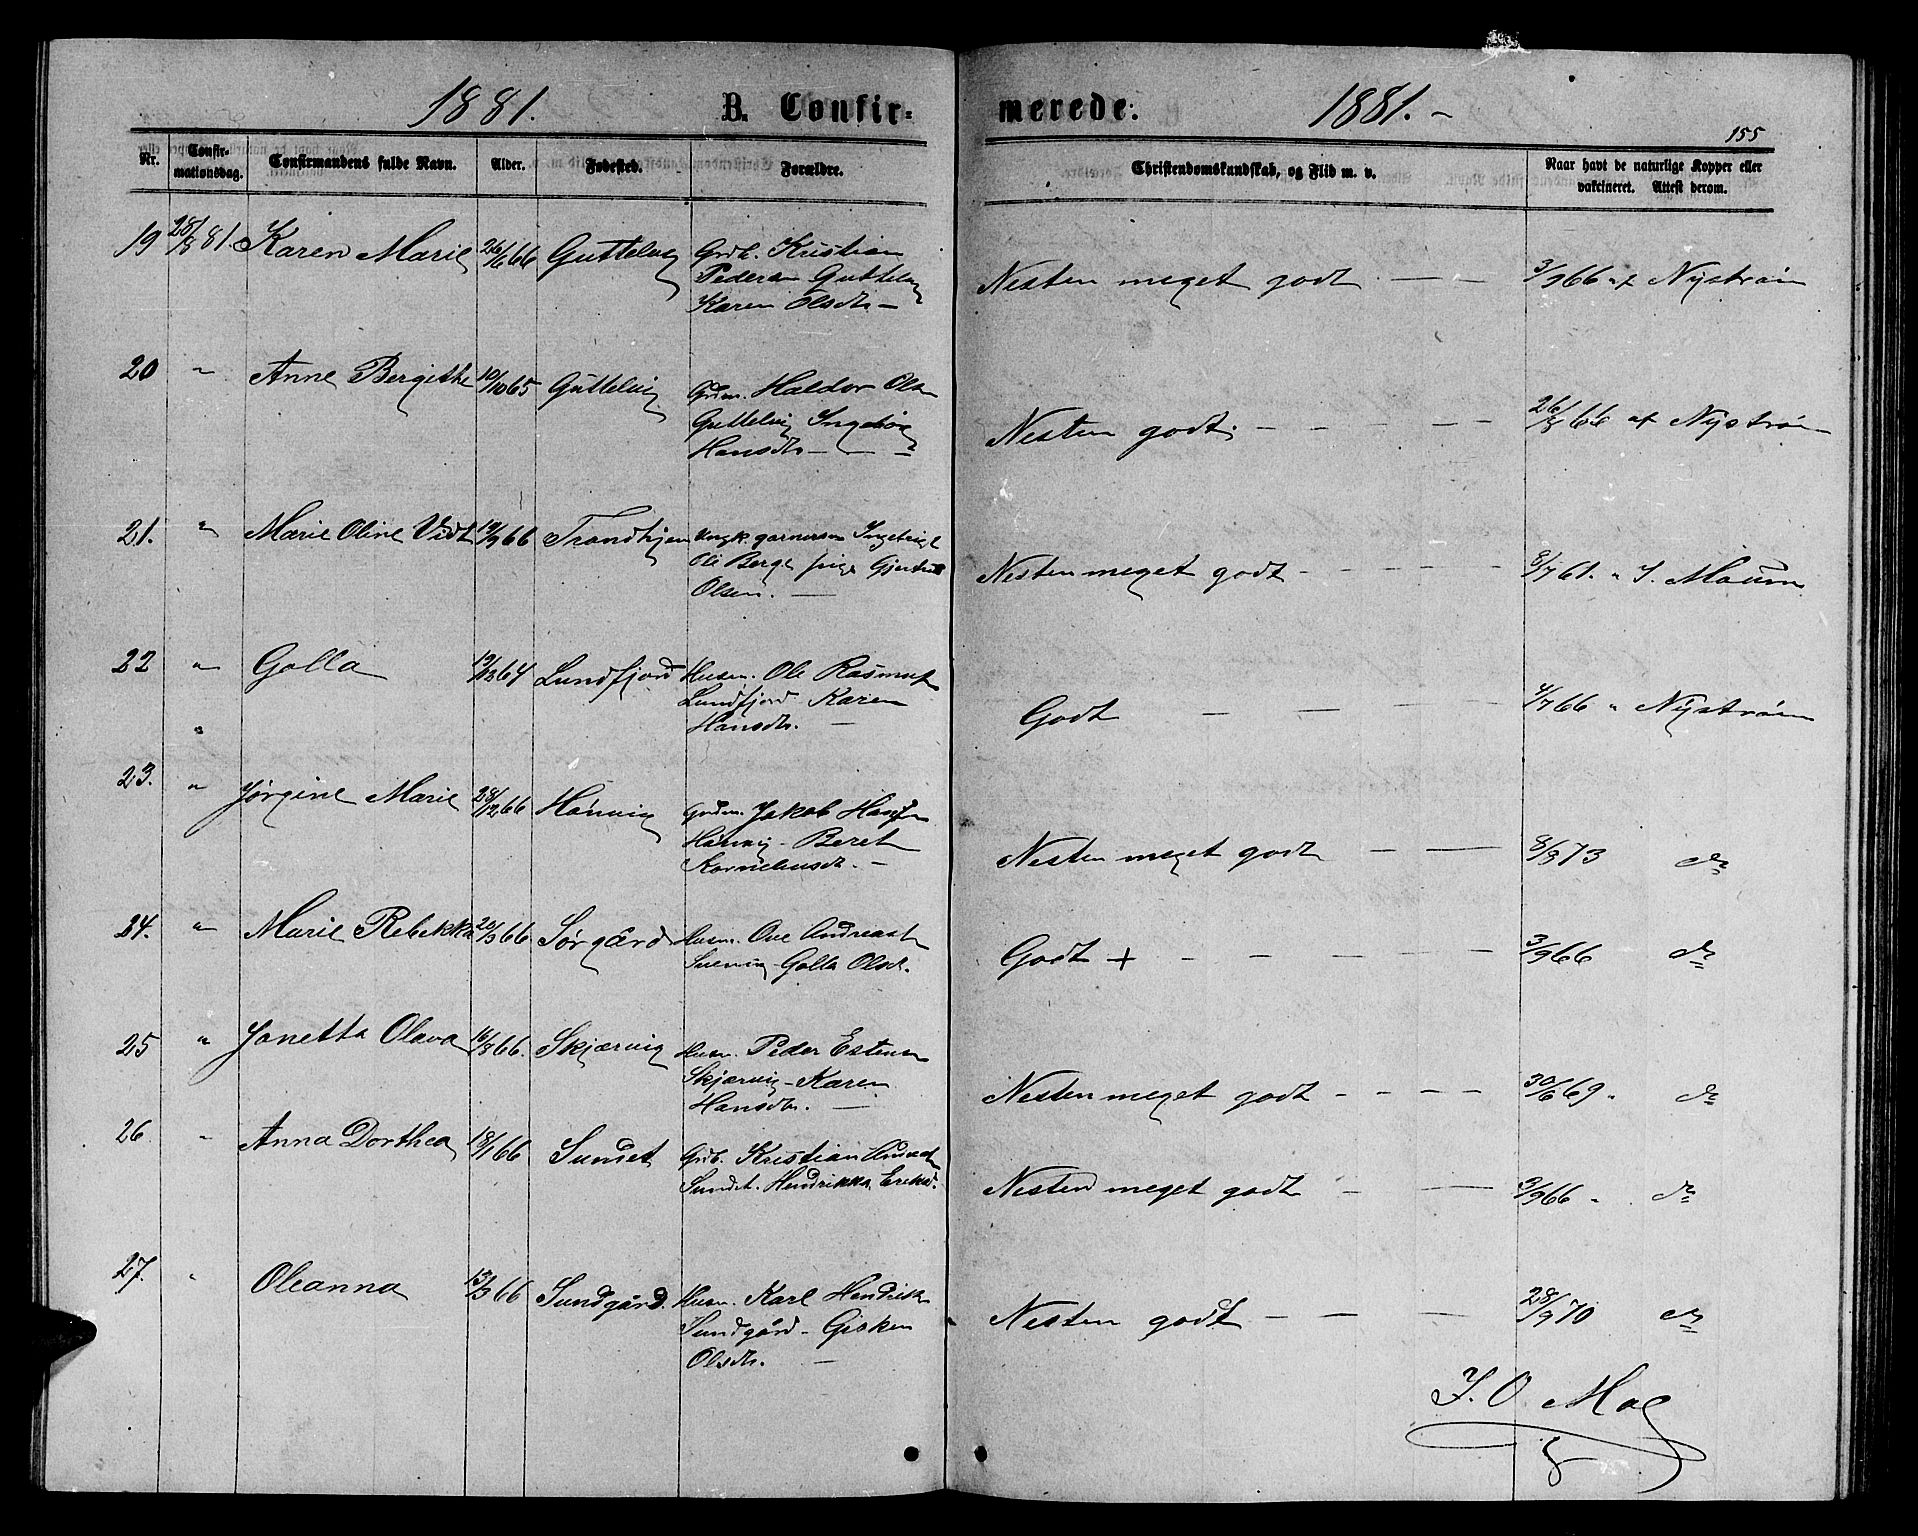 1881. B. Confir= merede: 1881.-
155
Nr. Confir-mationsdag. Confirmandens fulde Navn. Alder. Fødested. Forældre. Christendomskundskab, og Flid m. v. Naar havt de naturlige Kopper eller vakcineret. Attest derom.
19 28/8 81. Karen Marie 26/6 66 Guttelvig Grdb. Kristian
Pedersen Guttelvig
Karen Olsdtr. —
Nesten meget godt — — 3/9 66 af Nystrøm
20 " Anne Bergithe 10/10 65 Guttelvig Grdm. Haldor Ols
Guttelvig Ingebor
Hansdtr. — — "
Nesten godt. — — — — — 26/8 66 af Nystrøm
21. " Marie Oline Vidt 19/9 66 Trondhjem Ungk.
Ole Berg pige Gjertrud
Olsen. —
Nesten meget godt - - - - - 8/7 61. " J. Moum
22 " Golla 19/12 64 Lundfjord Husm. Ole Rasmus
Lundfjord Karen
" Hansdtr. —
Godt — — — — 4/7 66 " Nystrøm
23. " Jørgine Marie 28/12 66 Hårvig Grdm. Jakob
Hårvig - Beret
Kornelius dt. —
Nesten meget godt — — 8/9 73 do
24. " Marie Rebekka 20/3 66 Sørgård Husm. Ove Andreas
Golla Olsd.
Godt + - - - - - 3/9 66 do
25 " Janetta Olava 16/8 66. Skjærvig Husm. Peder Estens
Skjærvig - Karen
Hansdtr. —
Nesten meget godt - - - - 30/6 69 " do
26. " Anna Dorthea 18/1 66 Sundet Grdb. Kristian
Sundet. Hendrikka Eriksd.
Nesten meget godt - — 3/9 66 " do
27. " Oleanna 13/3 66 Sundgård. Husm. Karl Hendrik
Sundgård - Gisken
Olsdtr. —
Nesten godt - — — 28/9 70 do
J. O. Moe